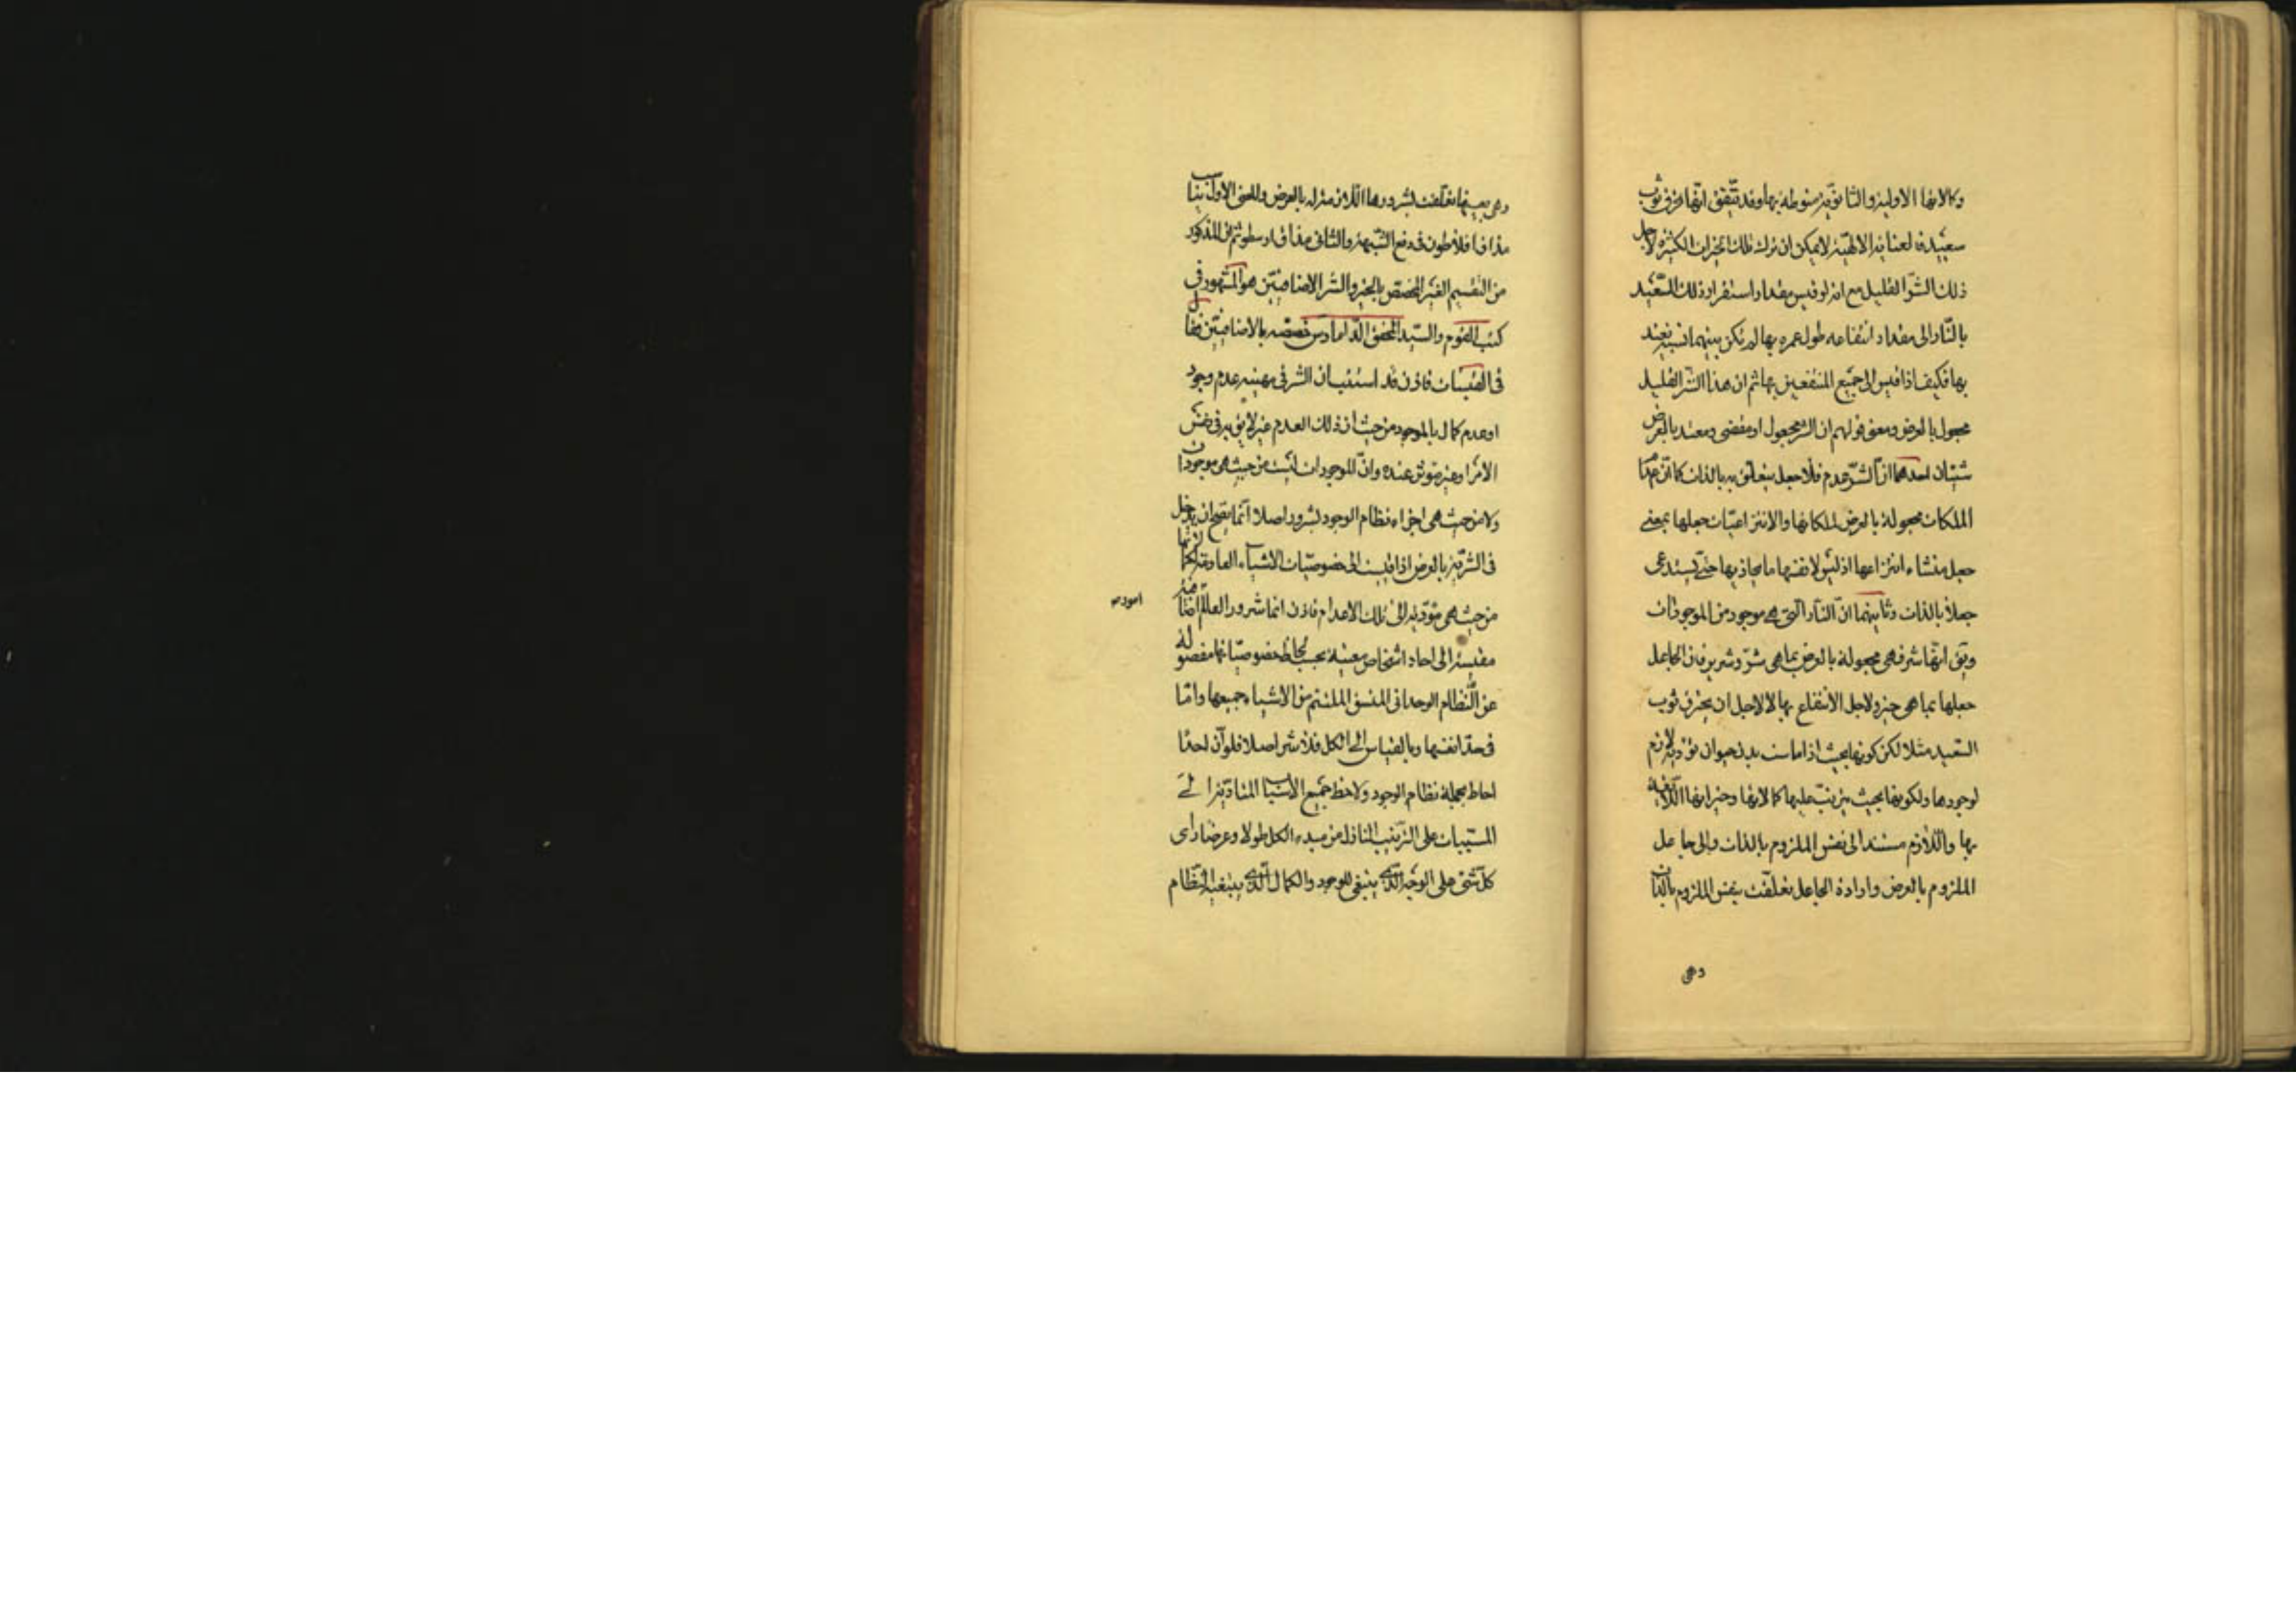 وكالاتها الاولية والثانوية منوطة بها وقد يتفق انها تحرق ثوب
سعيد فالعناية الالهية لا يمكن ان تترك تلك الخيرات الكثيرة لاجل
ذلك الشر القليل مع انه لو قيس مقدار استضرار ذلك السعيد
بالنار الى مقدار انتفاعه طول عمره بها لم يكن بينهما نسبة يعتد
بها فكيف اذا قيس الى جميع المنتفعين بها ثم ان هذا الشر القليل
مجعول بالعرض ومعنى قولهم ان الشر مجعول او مقضى ومعتد بالعرض
شيئان احدهما ان الشر عدم فلا جعل يتعلق به بالذات كما ان اعدام
الملكات مجعولة بالعرض لملكاتها والانتزاعيات جعلها بمعنى
جعل منشاء انتزاعها اذ ليس لانفسها ما يحاذيها حتى يستدعى
جعلا بالذات وثانيهما ان النار التى هى موجود من الموجودات
ويق انها شر فهى مجعولة بالعرض بما هى شر وشريرة فان الجاعل
جعلها بما هى خير ولاجل الانتفاع بها لا لاجل ان يحترق ثوب
السعيد مثلا لكن كونها بحيث اذا ماست بدن حيوان تؤذيه لازم
لوجودها ولكونها بحيث يترتب عليها كمالاتها وخيراتها اللائقة
بها واللازم مستند الى نفس الملزوم بالذات والى جاعل
الملزوم بالعرض وارادة الجاعل تعلقت بنفس الملزوم بالذات
وهى
وهى بعينها تعلقت بشرورها اللازمة له بالعرض والمعنى الاول يناسب
مذاق افلاطون فى دفع الشبهة والثانى مذاق ارسطو ثم ان المذكور
من التقسيم الغير المخصص بالخير والشر الاضافيين هو المشهور فى
كتب القوم والسيد المحقق الداماد س خصصه بالاضافيين فقال
فى القبسات فاذن قد استبان ان الشر فى مهيته عدم وجود
او عدم كمال بالموجود من حيث ان ذلك العدم غير لايق به فى نفس
الامر او غير مؤثر عنده وان الموجودات ليست من حيث هى موجودات
ولا من حيث هى اجزاء نظام الوجود بشرور اصلا انما يصح ان يدخل
فى الشرية بالعرض اذا قيست الى خصوصيات الاشياء العادمة لكمالاتها
من حيث هى مؤدية الى تلك الاعدام فاذن انما شرور العالم اضافية
امور
مقيسة الى احاد اشخاص معينة بحسب لحاظ خصوصياتها مفصولة
عن النظام الوحدانى المتسق الملتئم من الاشياء جميعها واما
فى حد انفسها وبالقياس الى الكل فلا شر اصلا فلو ان احدا
احاط بجملة نظام الوجود ولاحظ جميع الاسباب المتادية الى
المسببات على الترتيب النازل من مبدء الكل طولا وعرضا راى
كل شئ على الوجه الذى ينبغى للوجود والكمال الذى يبتغيه النظام